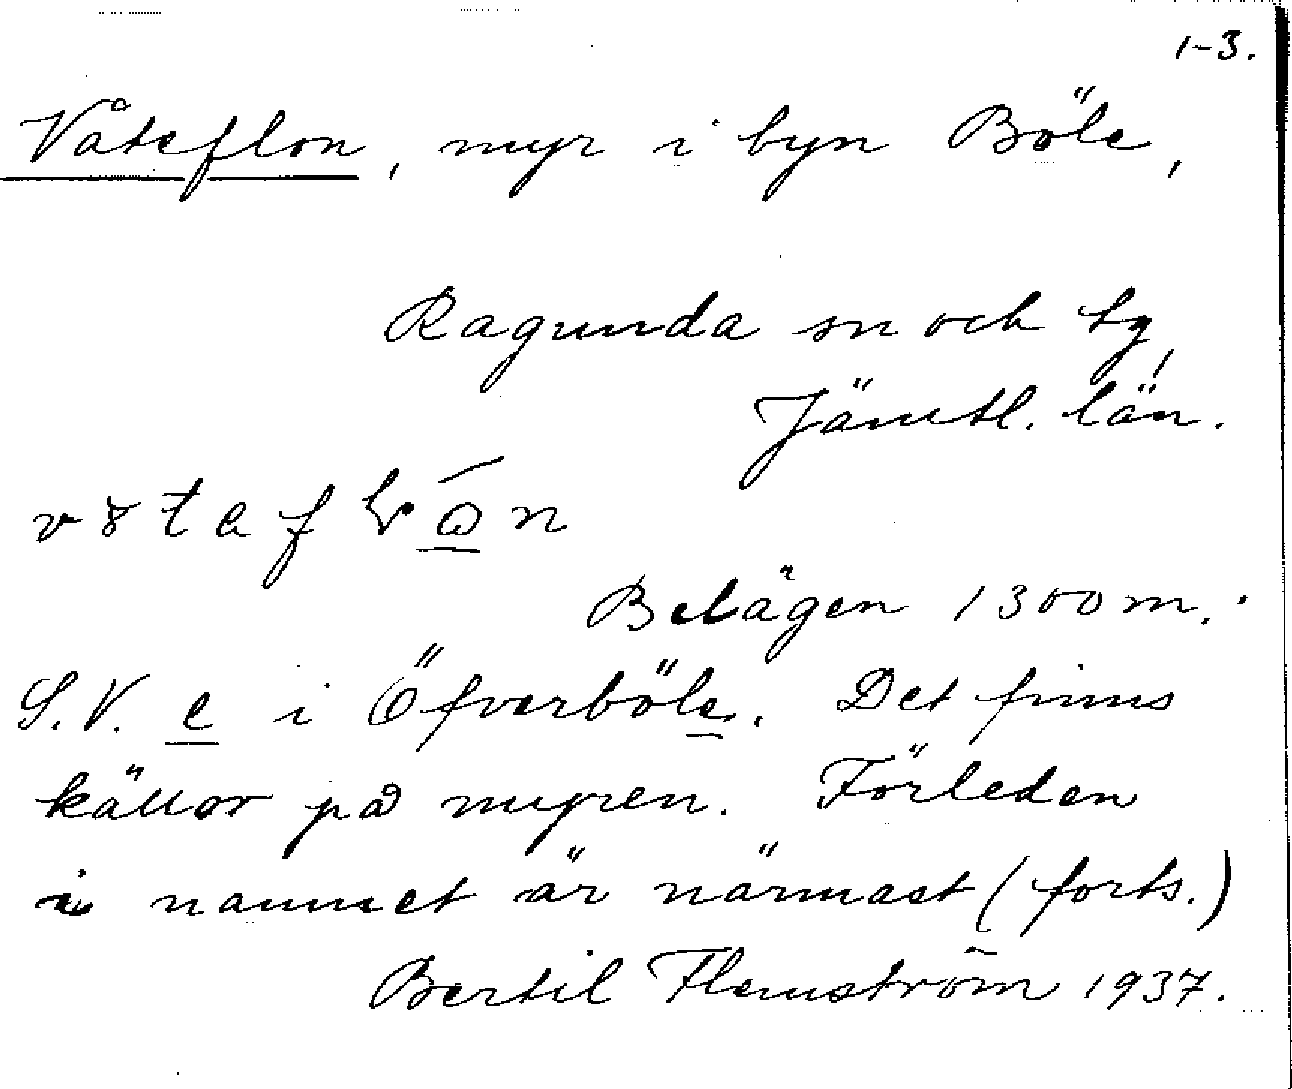 1-3.
Våteflon, myr i byn Böle,
Ragunda sn och tg,
Jämtl. län.
Belägen 1300 m.
S.V. e i Öfverböle. Det finns
källor på myren. Förleden
i namnet är närmast (forts.)
Bertil Flemström 1937.